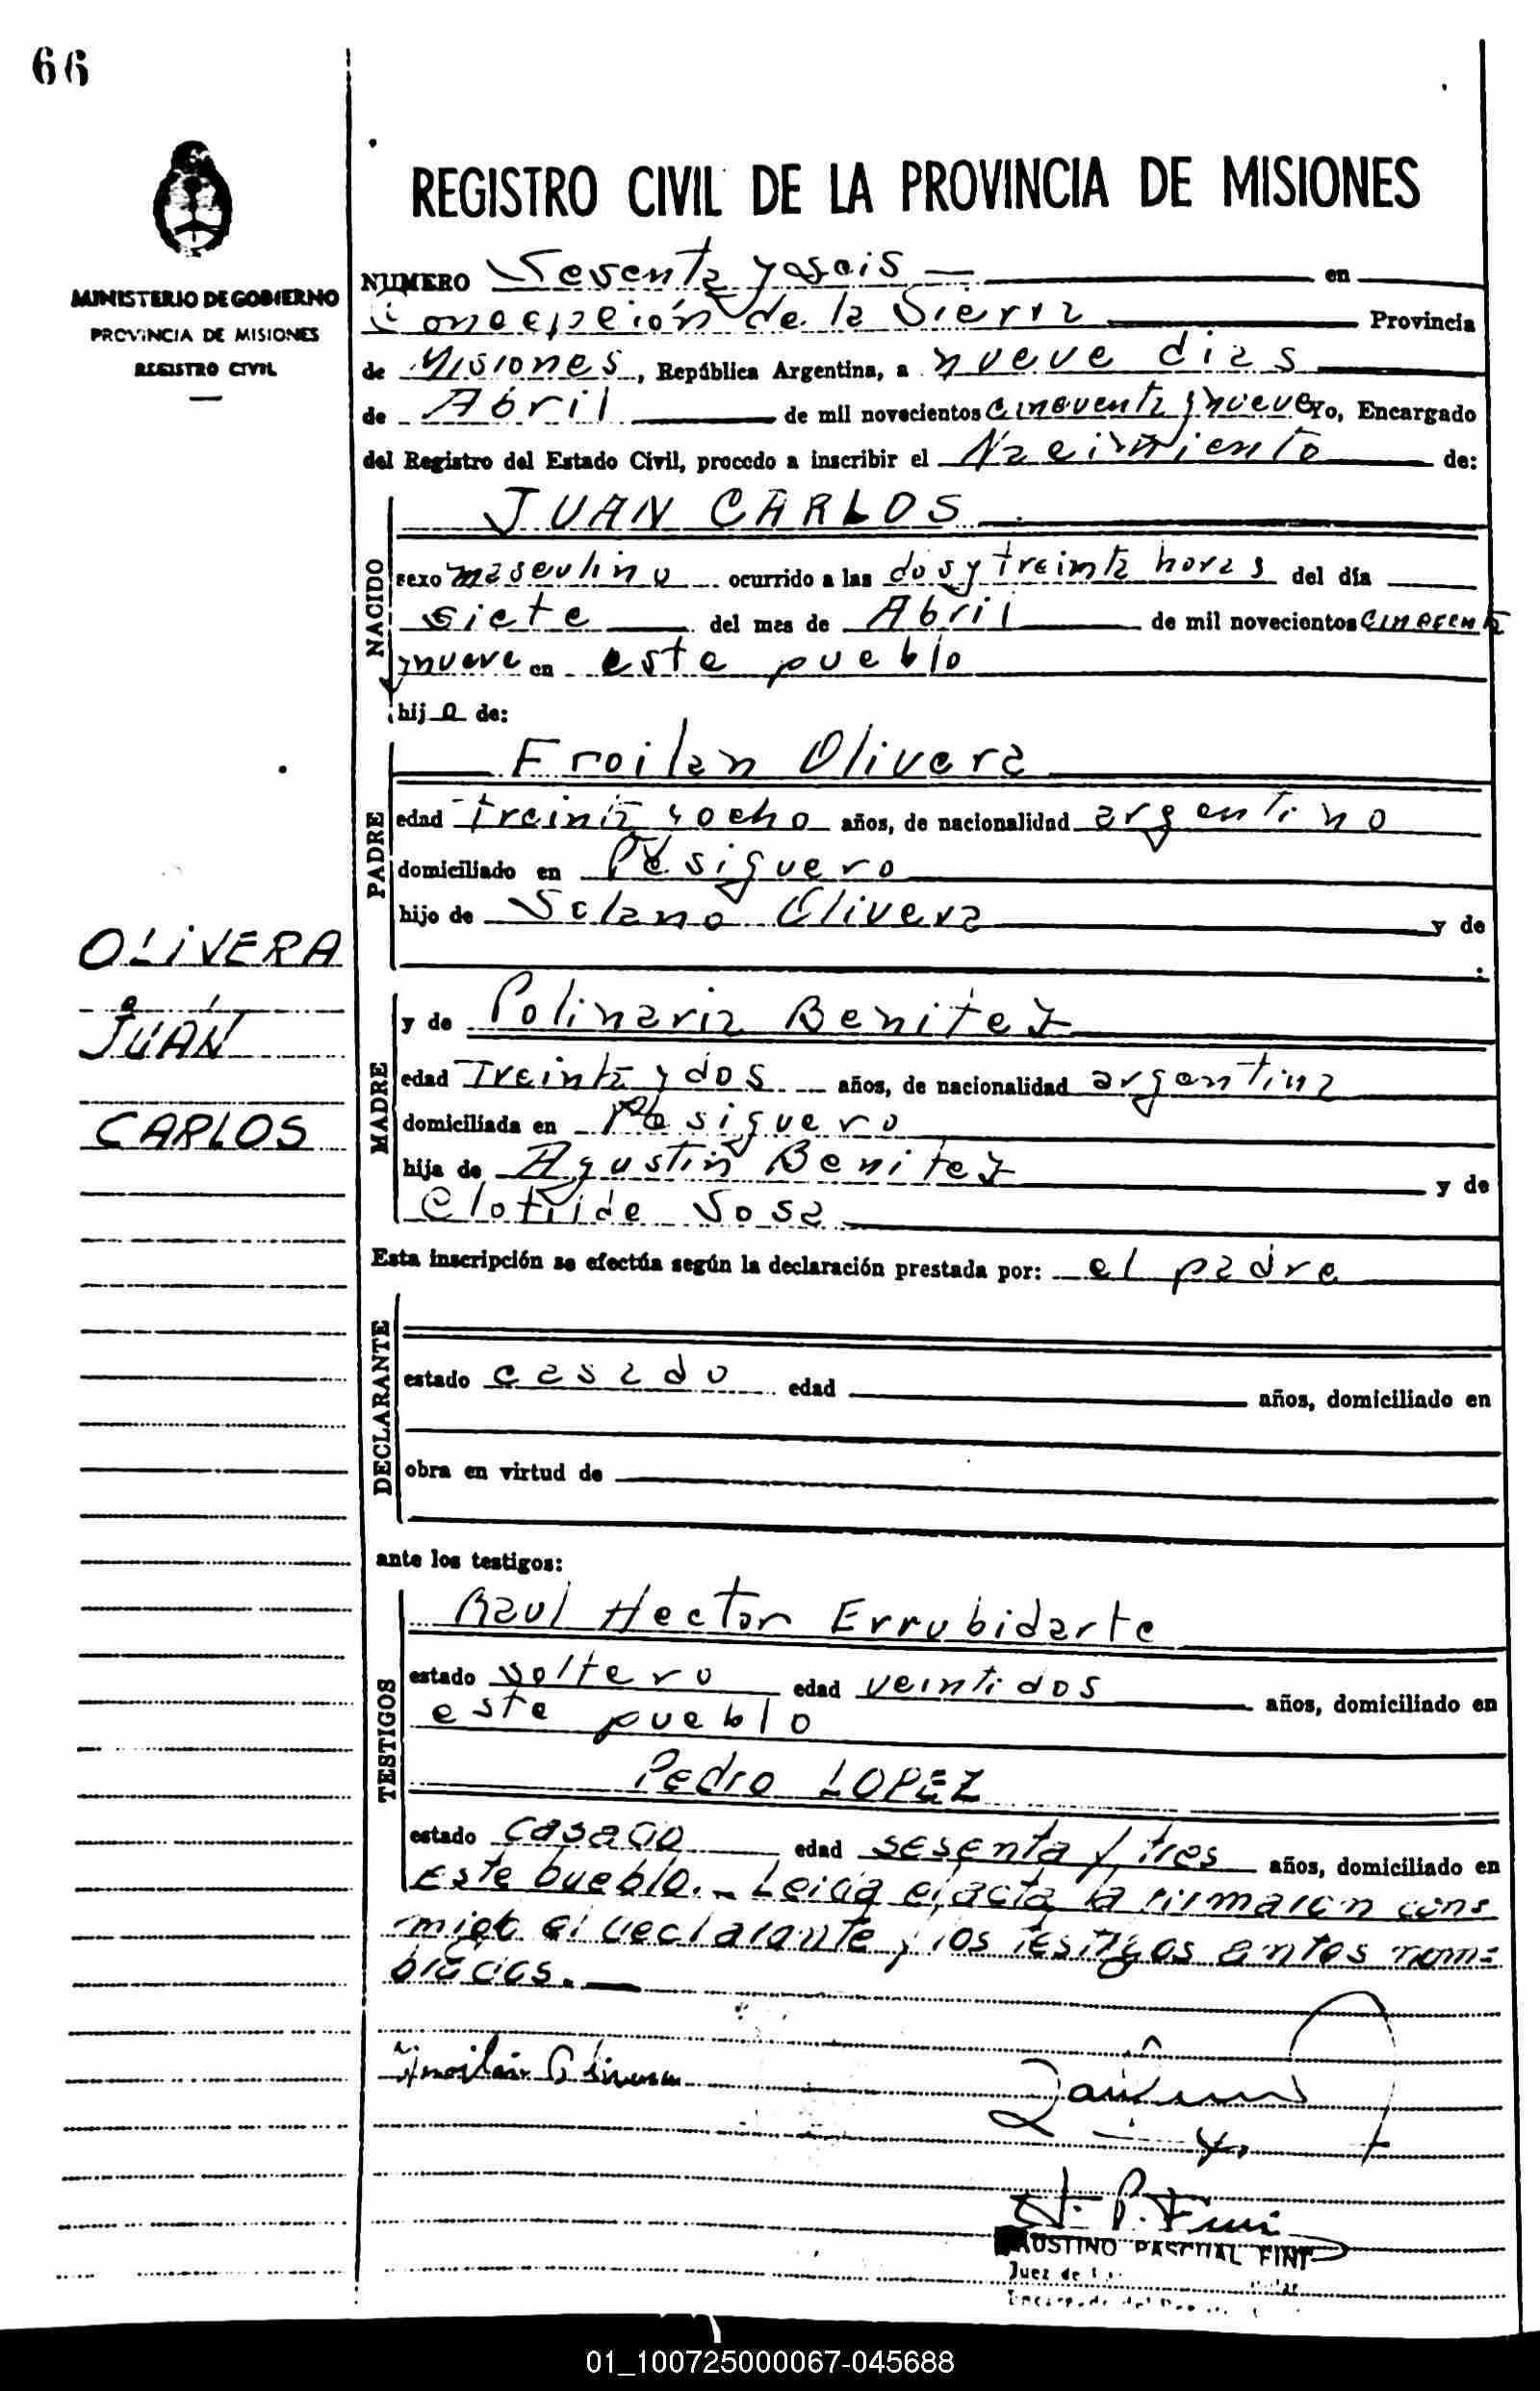 66
MINISTERIO DE GOBIERNO
PROVINCIA DE MISIONES
REGISTRO CIVIL
OLIVERA
JUAN
CARLOS
REGISTRO CIVIL DE LA PROVINCIA DE MISIONES
NUMERO Sesenta y seis en
Concepción de la Sierra Provincia
de Misiones, República Argentina, a nueve dias
de Abril de mil novecientos cincuenta y nueve Yo, Encargado
del Registro del Estado Civil, procedo a inscribir el Nacimiento de:
NACIDO
JUAN CARLOS
sexo masculino ocurrido a las dos y treinta horas del día
siete del mes de Abril de mil novecientos
y nueve en este pueblo
hijo de:
PADRE
Froilan Olivera
edad treinta y ocho años, de nacionalidad argentino
domiciliado en Pesiguero
hijo de Solano Olivera y de
MADRE
y de Polinaria Benitez
edad Treinta y dos años, de nacionalidad argentina
domiciliada en Pesiguero
hija de Agustin Benitez y de
Clotilde Sosa
Esta inscripción se efectúa según la declaración prestada por: el padre
DECLARANTE
estado casado edad años, domiciliado en
obra en virtud de
ante los testigos:
TESTIGOS
Raul Hector Errubidarte
estado soltero edad veintidos años, domiciliado en
este pueblo
Pedro LOPEZ
estado casado edad sesenta y tres años, domiciliado en
Este pueblo.- Leida el acta la firmaron
el declarante y los testigos antes nom=
brados.
Froilan Olivera
PASCUAL FINI
Juez de
01_100725000067-045688